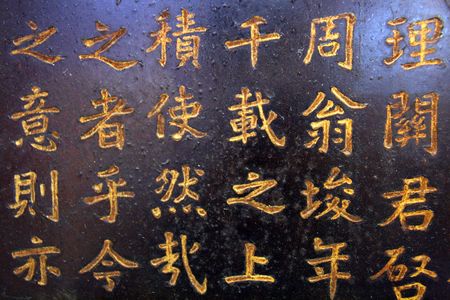 理關君啓
周翁埈年
千載之上
積使然哉
之者乎今
之意則亦